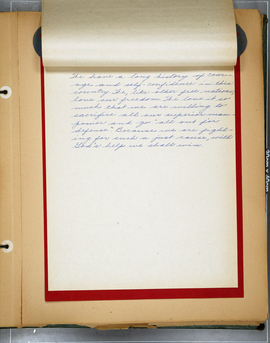 We have a long history of cour-
age and self-confidence in this
country. We, like other free nations,
love our freedom. We love it so
much that we are willing to
sacrifice all our superior man
power and go "all out for
defense". Because we are fight-
ing for such a just cause, with
God's help we shall win.